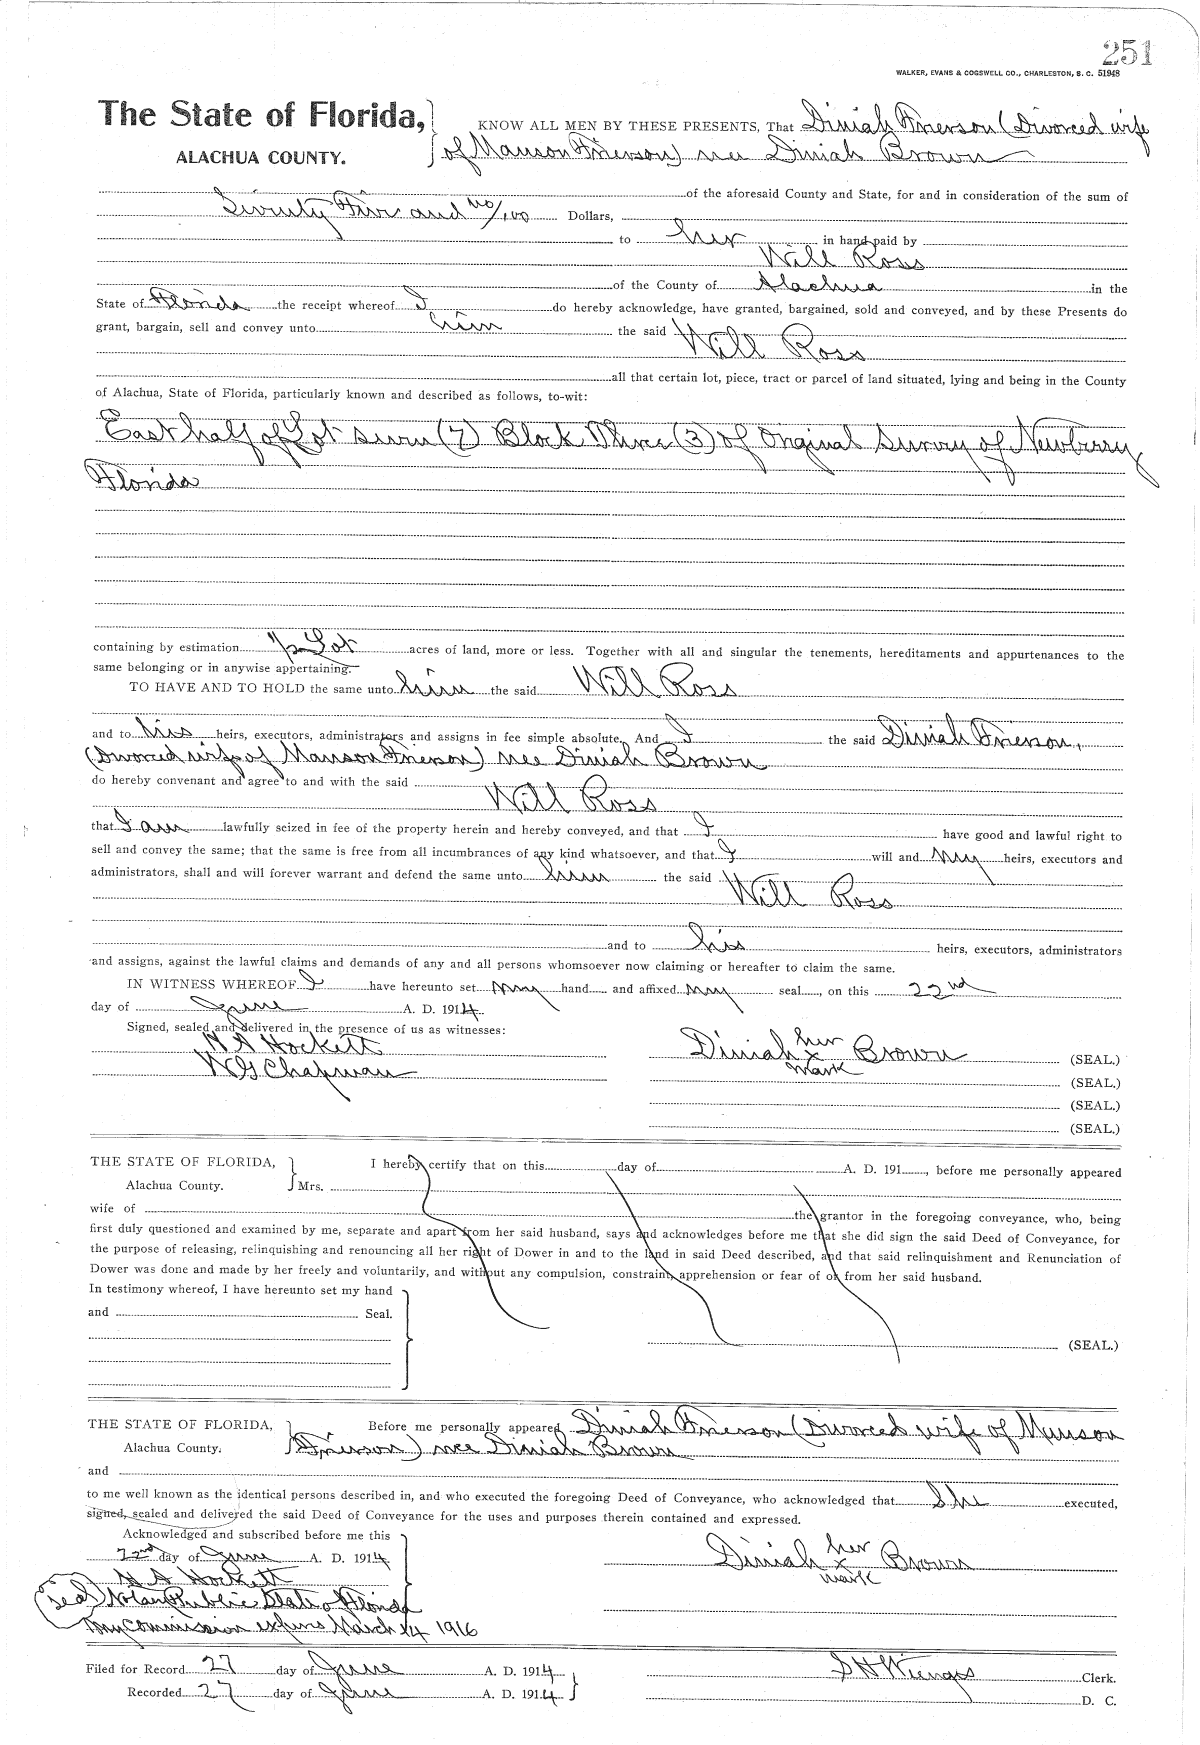 251
WALKER, EVANS & COGSWELL CO., CHARLESTON, S. C. 51948
The State of Florida, KNOW ALL MEN BY THESE PRESENTS, That Diniah Frierson (Divorced wife
ALACHUA COUNTY. of Manson Frierson) nee Diniah Brown
of the aforesaid County and State, for and in consideration of the sum of
Seventy Five and no/100 Dollars,
to her in hand paid by
Will Ross
of the County of Alachua in the
State of Florida the receipt whereof I do hereby acknowledge, have granted, bargained, sold and conveyed, and by these Presents do
grant, bargain, sell and convey unto him the said Will Ross
all that certain lot, piece, tract or parcel of land situated, lying and being in the County
of Alachua, State of Florida, particularly known and described as follows, to-wit:
East half of Lot seven (7) Block Three (3) of Orginal Survey of Newberry
Florida
containing by estimation 1/2 Lot acres of land, more or less. Together with all and singular the tenements, hereditaments and appurtenances to the
same belonging or in anywise appertaining.
TO HAVE AND TO HOLD the same unto him the said Will Ross
and to his heirs, executors, administrators and assigns in fee simple absolute. And I the said Diniah Frierson,
(Divorced wife of Manson Frierson) nee Diniah Brown
do hereby convenant and agree to and with the said
Will Ross
that I am lawfully seized in fee of the property herein and hereby conveyed, and that I have good and lawful right to
sell and convey the same; that the same is free from all incumbrances of any kind whatsoever, and that I will and my heirs, executors and
administrators, shall and will forever warrant and defend the same unto him the said Will Ross
and to his heirs, executors, administrators
and assigns, against the lawful claims and demands of any and all persons whomsoever now claiming or hereafter to claim the same.
IN WITNESS WHEREOF I have hereunto set my hand and affixed my seal, on this 22nd
day of June A. D. 1914.
Signed, sealed and delivered in the presence of us as witnesses:
H A Hockett
W G Chapman
Diniah her x mark Brown (SEAL.)
(SEAL.)
(SEAL.)
(SEAL.)
THE STATE OF FLORIDA, I hereby certify that on this day of A. D. 191, before me personally appeared
Alachua County. Mrs.
wife of the grantor in the foregoing conveyance, who, being
first duly questioned and examined by me, separate and apart from her said husband, says and acknowledges before me that she did sign the said Deed of Conveyance, for
the purpose of releasing, relinquishing and renouncing all her right of Dower in and to the land in said Deed described, and that said relinquishment and Renunciation of
Dower was done and made by her freely and voluntarily, and without any compulsion, constraint, apprehension or fear of or from her said husband.
In testimony whereof, I have hereunto set my hand
and Seal.
(SEAL.)
THE STATE OF FLORIDA, Before me personally appeared Diniah Frierson (Divorced wife of Munson
Alachua County. Frierson) nee Diniah Brown
and
to me well known as the identical persons described in, and who executed the foregoing Deed of Conveyance, who acknowledged that She executed,
signed, sealed and delivered the said Deed of Conveyance for the uses and purposes therein contained and expressed.
Acknowledged and subscribed before me this
22nd day of June A. D. 1914.
Diniah her x mark Brown
H A Hockett
(seal) Notary Public State of Florida
my commission expires March 14 1916
Filed for Record 27 day of June A. D. 1914 Clerk.
Recorded 27 day of June A. D. 1914 D. C.